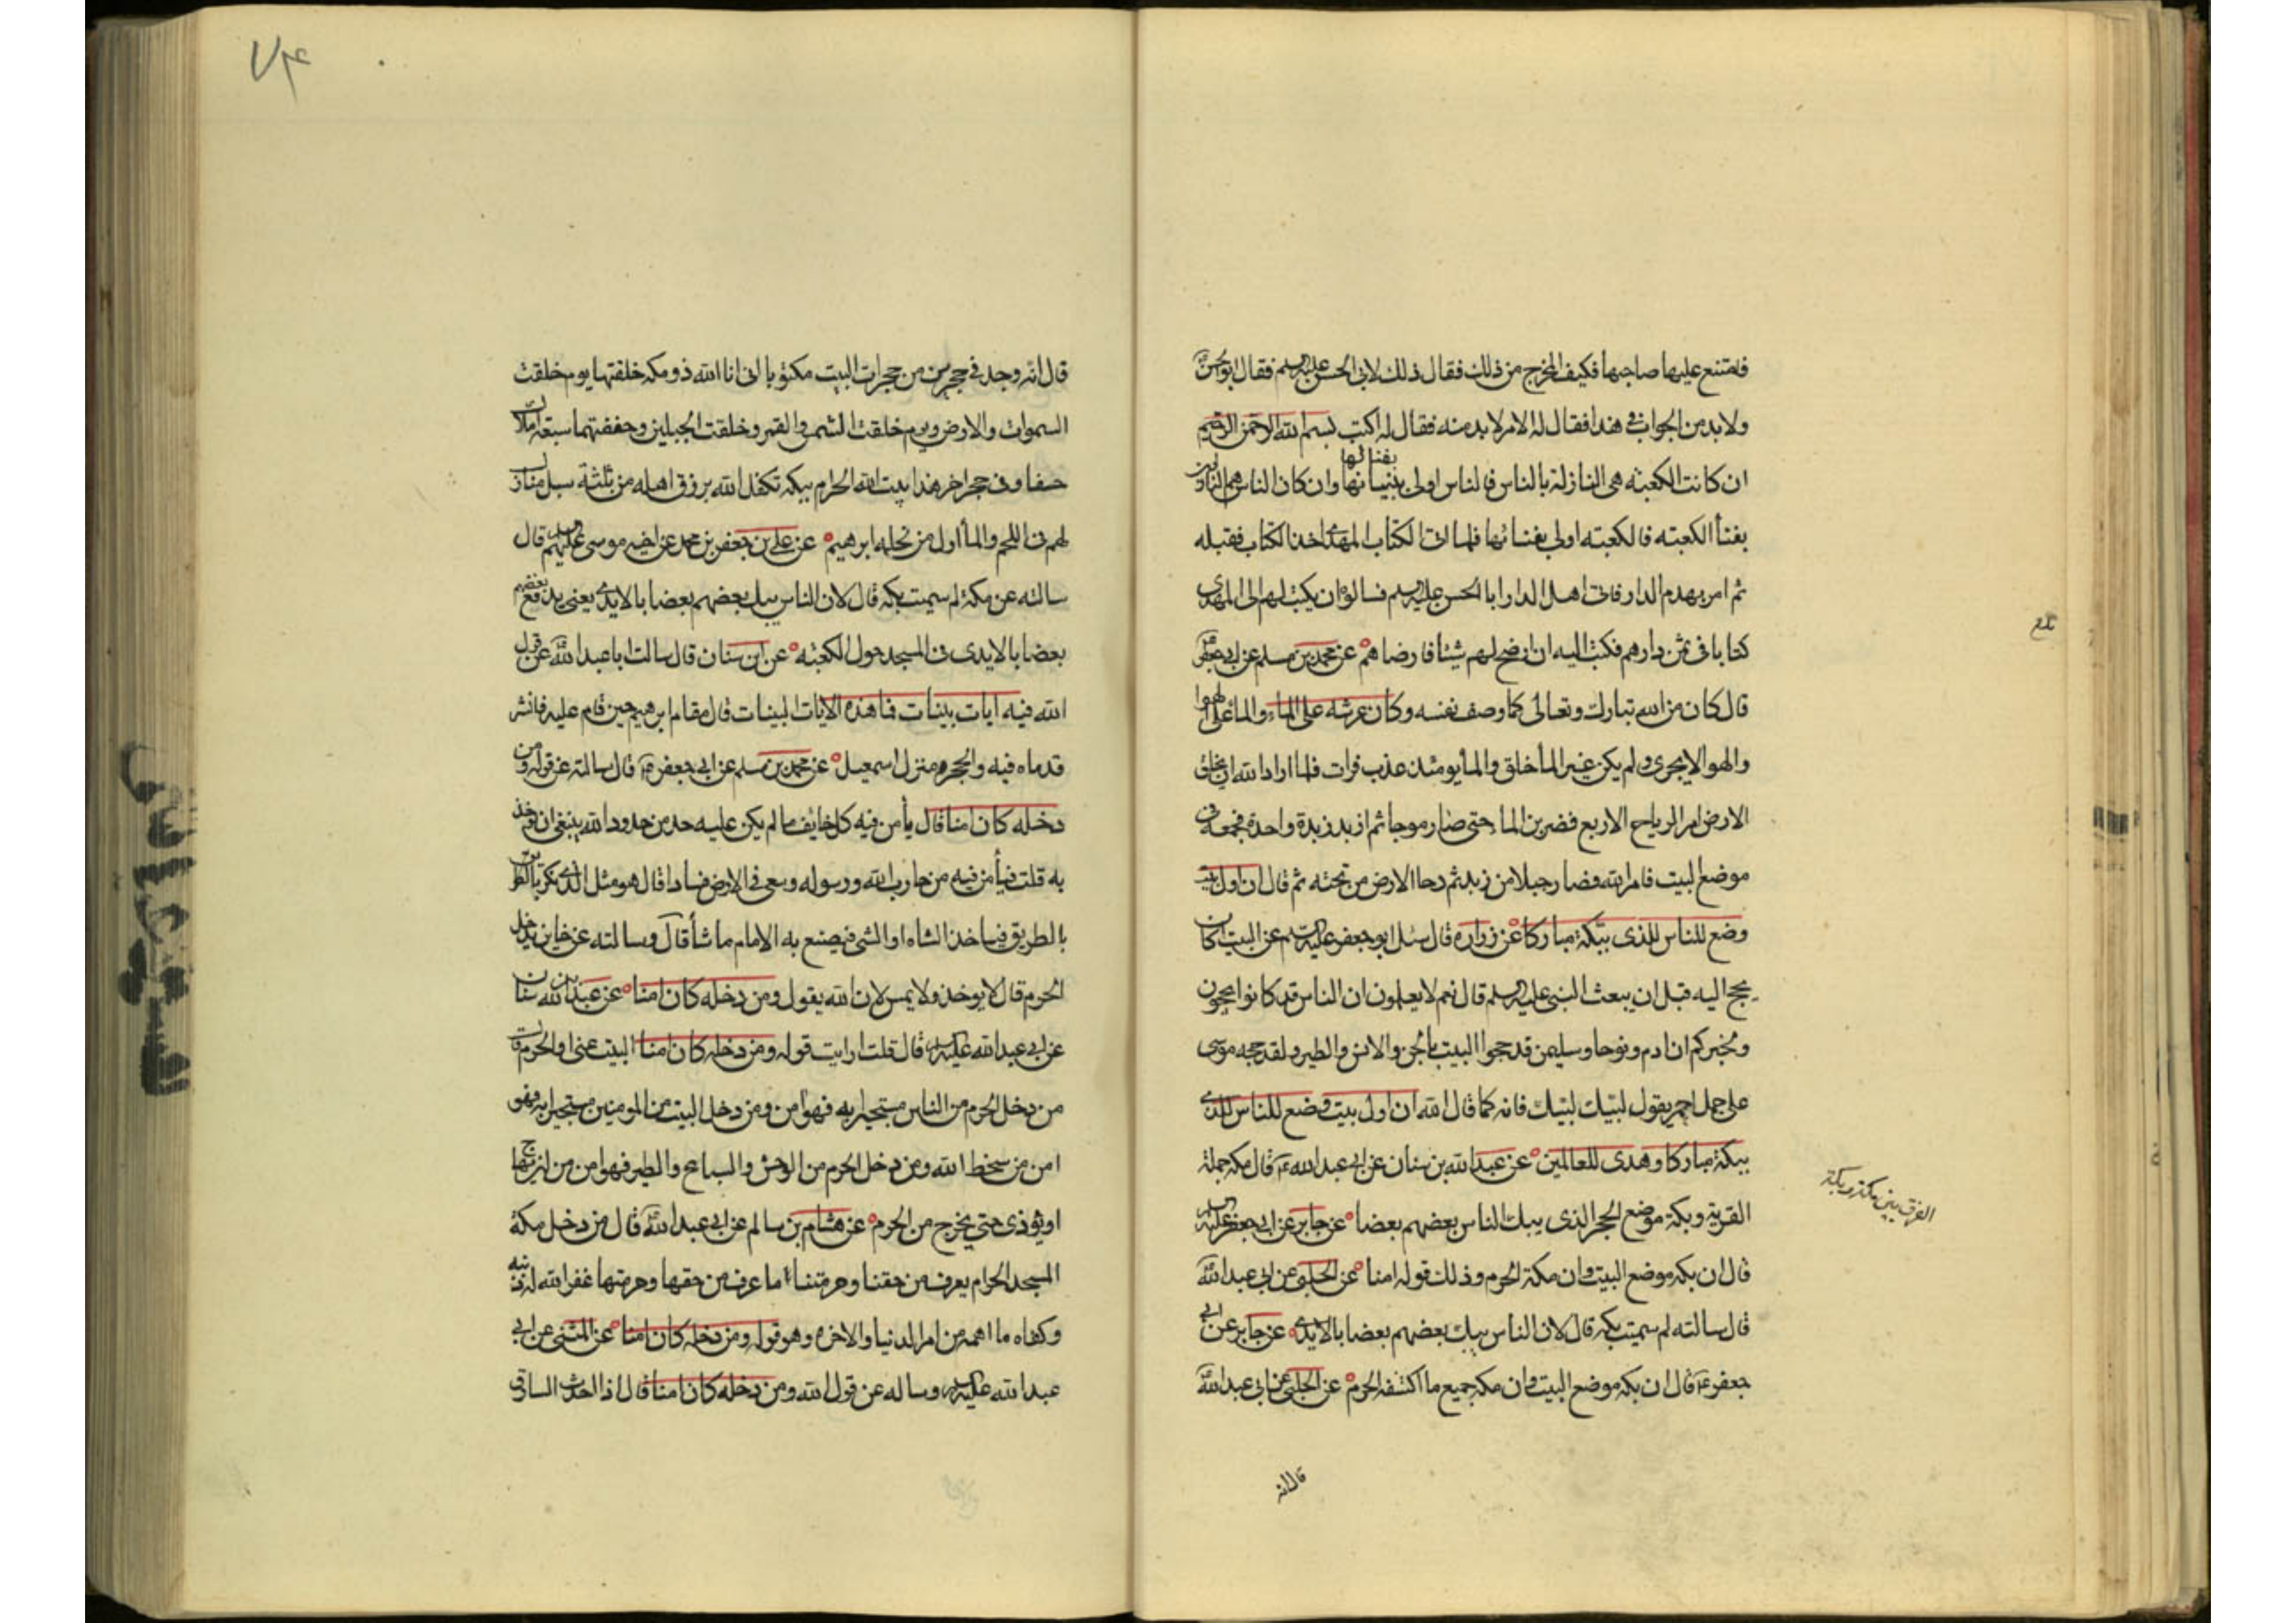 فامتنع عليها صاحبها فكيف المخرج من ذلك فقال ذلك لابي الحسن عليه السلم فقال ابو الحسن
ولا بد من الجواب في هذا فقال له الامر لا بد منه فقال له اكتب بسم الله الرحمن الرحيم
بفنائها
ان كانت الكعبه هي النازلة بالناس فالناس اولى ببنيانها وان كان الناس هم النازلون
بفنأ الكعبته فالكعبته اولى بفنائها فلما اتى الكتاب المهدى اخذ الكتاب فقبله
ثم امر بهدم الدار فاتى اهل الدار ابا الحسن عليه السلم فسالوه ان يكتب لهم الى المهدى
كتابا فى ثمن دارهم فكتب اليه ان ارضخ لهم شيئا فارضاهم عن محمد بن مسلم عن ابي جعفر
قال كان الله تبارك وتعالى كما وصف نفسه وكان عرشه على الماء والماء على الهوا
والهوا لا يجرى ولم يكن غير الماء خلق والمأ يومئذ عذب فرات فلما اراد الله ان يخلق
الارض امر الرياح الاربع فضربن الماء حتى صار موجا ثم ازبد زبدة واحدة فجمعه فى
موضع البيت فامر الله فصار جبلا من زبد ثم دحا الارض من تحته ثم قال ان اول بيت
وضع للناس للذى ببكة مباركا عن زراره قال سئل ابو جعفر عليه السلم عن البيت اكان
يحج اليه قبل ان يبعث النبى عليه السلم قال نعم لا يعلمون ان الناس قد كانوا يحجون
ونخبركم ان ادم ونوحا وسليمن قد حجوا البيت بالجن والانس والطير ولقد حجه موسى
على جمل احمر يقول لبيك لبيك فانه كما قال الله ان اول بيت وضع للناس للذى
ببكة مباركا وهدى للعالمين عن عبد الله بن سنان عن ابي عبد الله ع قال مكه جملة
القرية وبكة موضع الحجر الذى يبك الناس بعضهم بعضا عن جابر عن ابي جعفر عليه السلم
قال ان بكه موضع البيت وان مكة الحرم وذلك قوله امنا عن الحلبى عن ابى عبد الله
قال سالته لم سميت بكه قال لان الناس يبك بعضهم بعضا بالايدى عن جابر عن ابي
جعفر ع قال ان بكه موضع البيت وان مكه جميع ما اكتنفه الحرم عن الحلبى عن ابى عبد الله
قال انه
الفرق بين مكة وبكة
۷۴
قال انه وجد فى حجر من حجرات البيت مكتوبا انى انا الله ذو مكه خلقتها يوم خلقت
السموات والارض ويوم خلقت الشمس والقمر وخلقت الجبلين وحففتهما سبعة املاك
حفا وفى حجر اخر هذا بيت الله الحرام ببكه تكفل الله برزق اهله من ثلثة سبل مبارك
لهم فى اللحم والمأ اول من نحله ابرهيم عن على بن جعفر بن محمد عن اخيه موسى عليهم السلم قال
سالته عن مكة لم سميت بكه قال لان الناس يبك بعضهم بعضا بالايدى يعنى يدفع بعضهم
بعضا بالايدى فى المسجد حول الكعبه عن ابن سنان قال سالت ابا عبد الله عن قول
الله فيه ايات بينات فما هذه الايات البينات قال مقام ابرهيم حين قام عليه فاثر
قدماه فيه والحجر ومنزل اسمعيل عن محمد بن مسلم عن ابي جعفر ع قال سالته عن قوله ومن
دخله كان امنا قال يأمن فيه كل خايف ما لم يكن عليه حد من حدود الله ينبغى ان يؤخذ
به قلت فيأمن فيه من حارب الله ورسوله وسعى فى الارض فسادا قال هو مثل الذى يكر بالطريق
بالطريق فياخذ الشاه او الشى فيصنع به الامام ما شأ قال وسالته عن خاين يدخل
الحرم قال لا يوخذ ولا يمس لان الله يقول ومن دخله كان امنا عن عبد الله بن سنان
عن ابي عبد الله عليه السلم قال قلت ارايت قوله ومن دخله كان امنا البيت عنى او الحرم قال
من دخل الحرم من الناس مستجيرا به فهو امن ومن دخل البيت من المومنين مستجيرا به فهو
امن من سخط الله ومن دخل الحرم من الوحش والسباع والطير فهو امن من ان يهاج
او يؤذى حتى يخرج من الحرم عن هشام بن سالم عن ابي عبد الله قال من دخل مكة
المسجد الحرام يعرف من حقنا وحرمتنا ما عرف من حقها وحرمتها غفر الله له ذنبه
وكفاه ما اهمه من امر الدنيا والاخره وهو قوله ومن دخله كان امنا عن المثنى عن ابي
عبد الله عليه السلم وساله عن قول الله ومن دخله كان امنا قال اذا احدث السارق